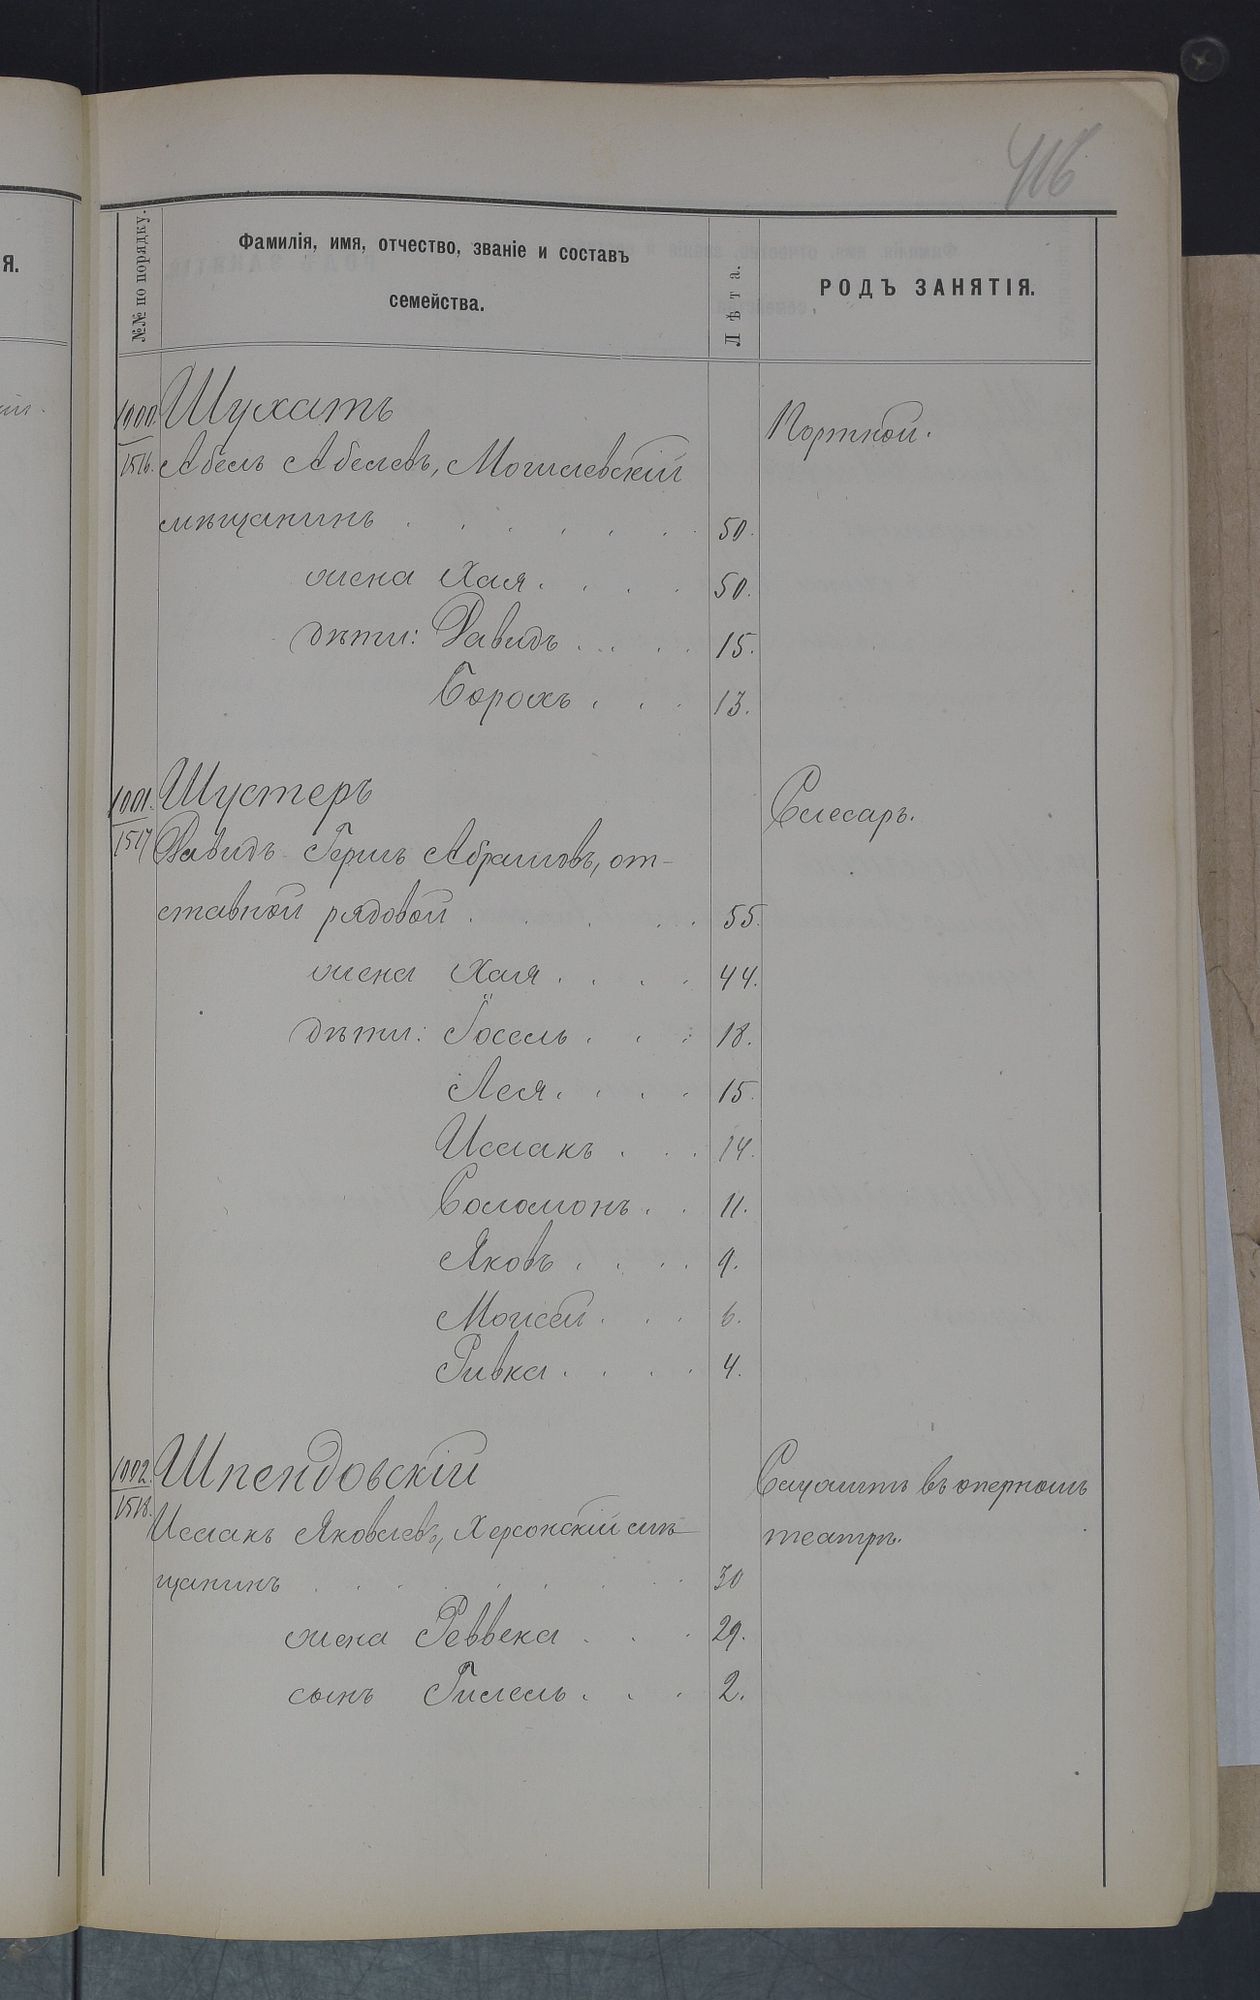 416
№№ по порядку.
Фамилія, имя, отчество, званіе и составъ
семейства.
Лѣта.
РОДЪ ЗАНЯТІЯ.
Я.
1000. Шухатъ
Портной.
1516. Абель Абелевъ, Могилевскій
мѣщанинъ . . . . . . 50.
жена Хая . . . . 50.
дѣти: Давидъ . . . . 15.
Борохъ . . . 13.
1001. Шустеръ
Слесарь.
1517 Давидъ-Гершъ Абрамовъ, от-
ставной рядовой . . . . . 55.
жена Хая . . . . 44.
дѣти: Іосель . . . 18.
Лея . . . . 15.
Исаакъ . . . 14.
Соломонъ . . 11.
Яковъ . . . . 9.
Моисей . . . 6.
Ривка . . . . 4.
1002. Шпендовскій
Служитъ въ оперномъ
1518. Исаакъ Яковлевъ, Херсонскій мѣ
театрѣ.
щанинъ . . . . . . . 30
жена Реввека . . . 29.
сынъ Гилель . . . 2.